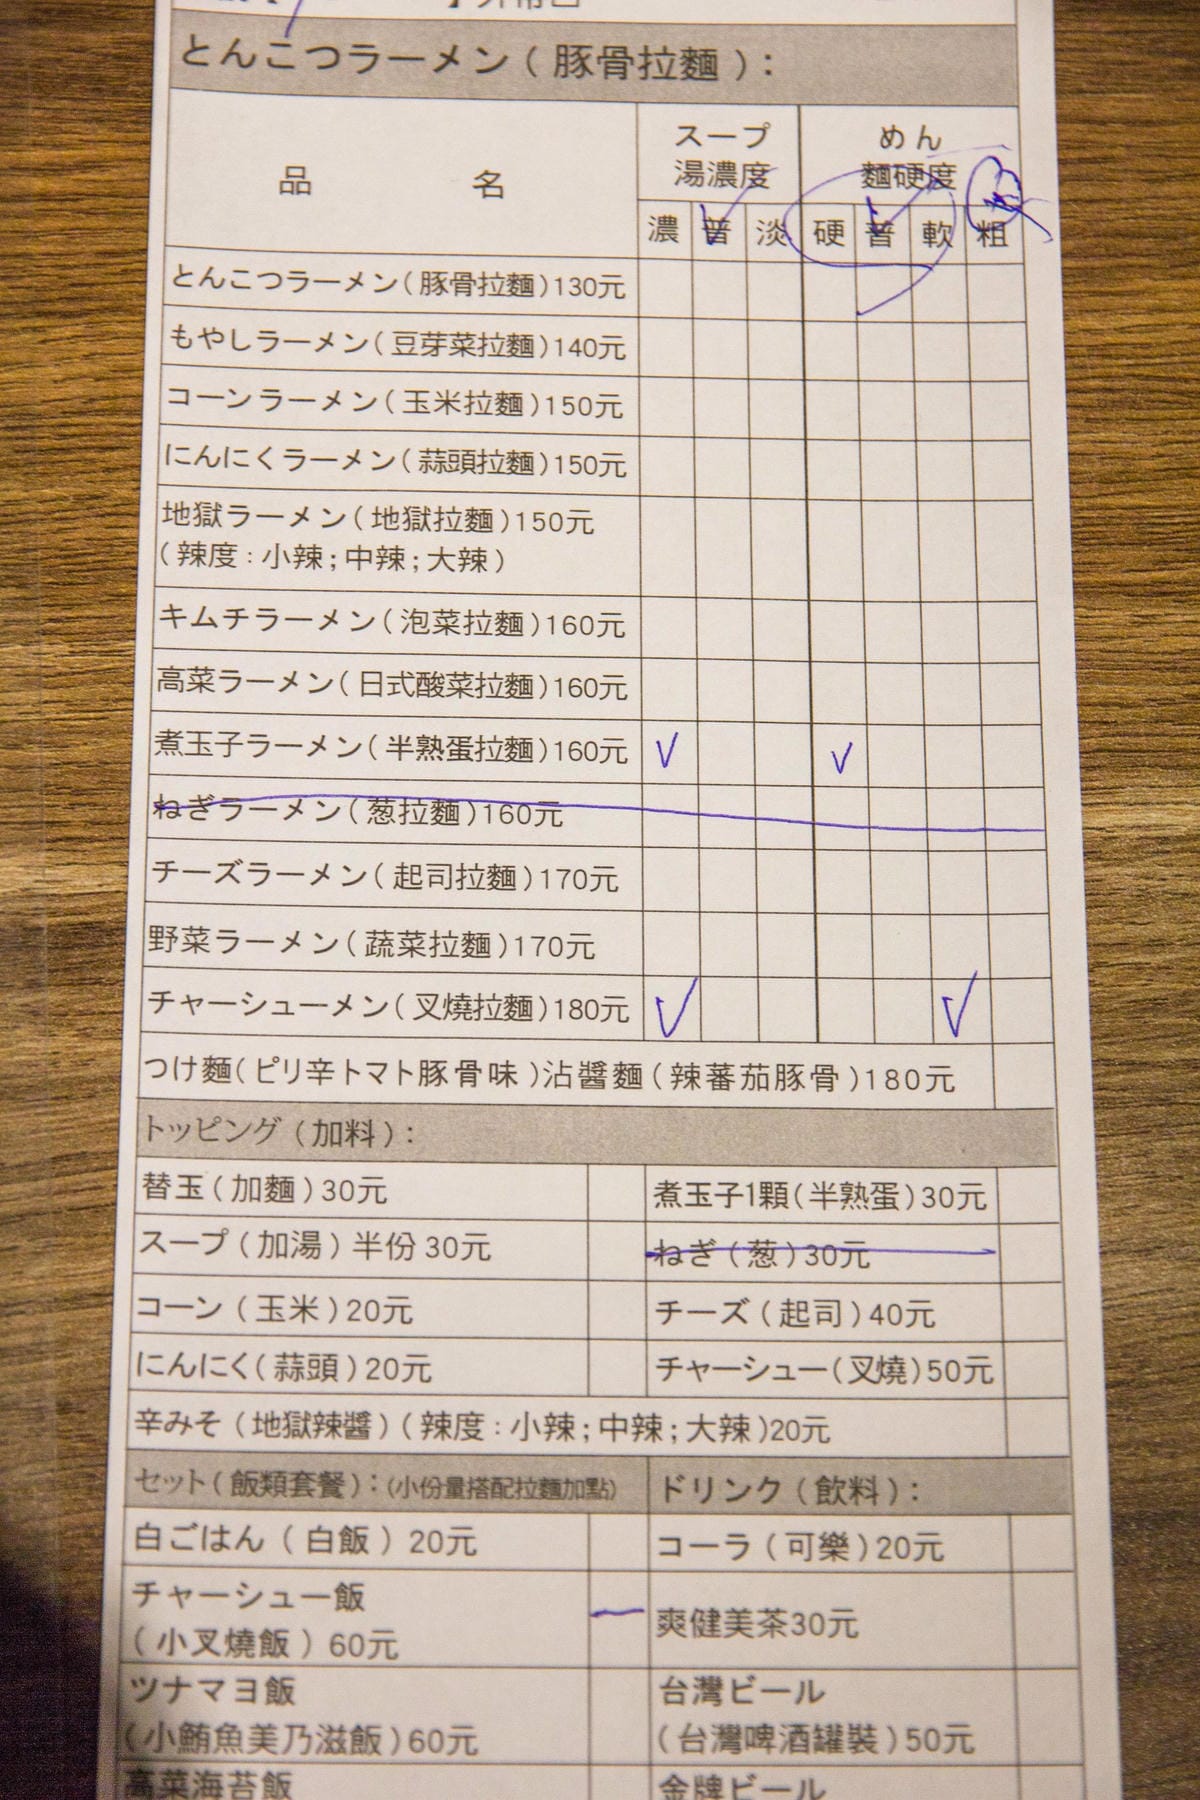 とんこつラーメン(豚骨拉麵):
品 名
スープ
湯濃度
めん
麵硬度
濃 普 淡 硬 普 軟 粗
とんこつラーメン(豚骨拉麵)130元
もやしラーメン(豆芽菜拉麵)140元
コーンラーメン(玉米拉麵)150元
にんにくラーメン(蒜頭拉麵)150元
地獄ラーメン(地獄拉麵)150元
(辣度:小辣;中辣;大辣)
キムチラーメン(泡菜拉麵)160元
高菜ラーメン(日式酸菜拉麵)160元
煮玉子ラーメン(半熟蛋拉麵)160元
ねぎラーメン(葱拉麵)160元
チーズラーメン(起司拉麵)170元
野菜ラーメン(蔬菜拉麵)170元
チャーシューメン(叉燒拉麵)180元
つけ麵(ピリ辛トマト豚骨味)沾醬麵(辣蕃茄豚骨)180元
トッピング(加料):
替玉(加麵)30元
煮玉子1顆(半熟蛋)30元
スープ(加湯)半份30元
ねぎ(葱)30元
コーン(玉米)20元
チーズ(起司)40元
にんにく(蒜頭)20元
チャーシュー(叉燒)50元
辛みそ(地獄辣醬)(辣度:小辣;中辣;大辣)20元
セット(飯類套餐):(小份量搭配拉麵加點)
ドリンク(飲料):
白ごはん(白飯)20元
コーラ(可樂)20元
チャーシュー飯
(小叉燒飯)60元
爽健美茶30元
ツナマヨ飯
(小鮪魚美乃滋飯)60元
台灣ビール
(台灣啤酒罐裝)50元
高菜海苔飯
金牌ビール